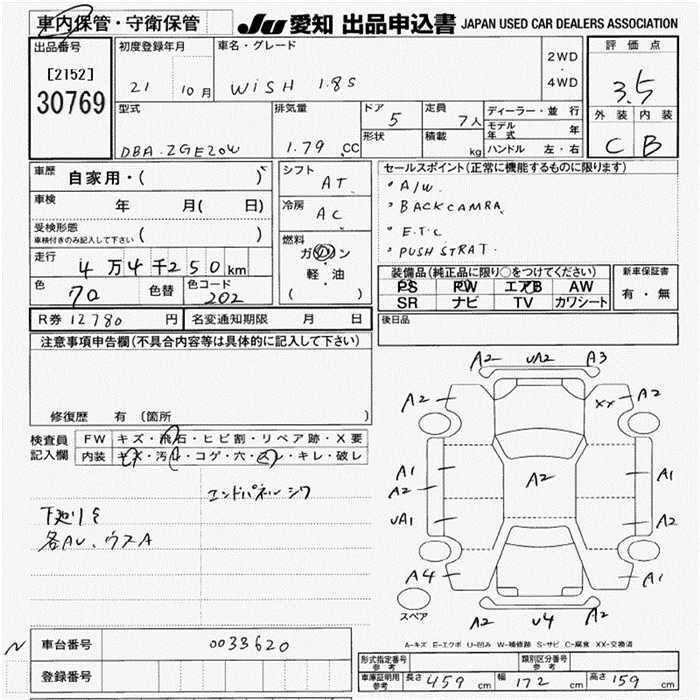 車内保管・守衛保管
JU 愛知 出品申込書 JAPAN USED CAR DEALERS ASSOCIATION
出品番号
[2152]
30769
初度登録年月
21 10月
車名・グレード
WiSH 1.8S
2WD
・
4WD
評価点
3.5
外装 内装
C B
型式
DBA-ZGE20W
排気量
1.79 CC
ドア 5
形状
定員 7人
積載 kg
ディーラー・並行
モデル年式 年
ハンドル 左・右
車歴 自家用・( )
車検 年 月( 日)
受検形態
車検付きのみ記入して下さい ( )
走行 4万4千250km
色 色替 色コード
70 202
シフト AT
冷房 AC
燃料
ガソリン
軽・油
( )
セールスポイント(正常に機能するものに限ります)
・A/W.
・BACKCAMRA
・E.T.C
・PUSH STRAT.
装備品(純正品に限り○をつけてください)
PS PW エアB AW
SR ナビ TV カワシート
新車保証書
有・無
R券 12780 円
名変通知期限 月 日
後日品
注意事項申告欄(不具合内容等は具体的に記入して下さい)
修復歴 有 (箇所 )
検査員記入欄
FW キズ・飛石・ヒビ割・リペア跡・X要
内装 キズ・汚れ・コゲ・穴・スレ・キレ・破レ
エンドパネルシワ
下廻りを
各AU、ウスA
A2 UA2 A3
A2 XX A2
A1 A2 A1
A2
UA1 A2
A4 A1
スペア
A2 U4 A2
A-キズ E-エクボ U-凹み W-補修跡 S-サビ C-腐食 XX-交換済
N
車台番号 0033620
登録番号
形式指定番号
参考
類別区分番号
参考
車庫証明用
参考
長さ 459 cm 幅 172 cm 高さ 159 cm